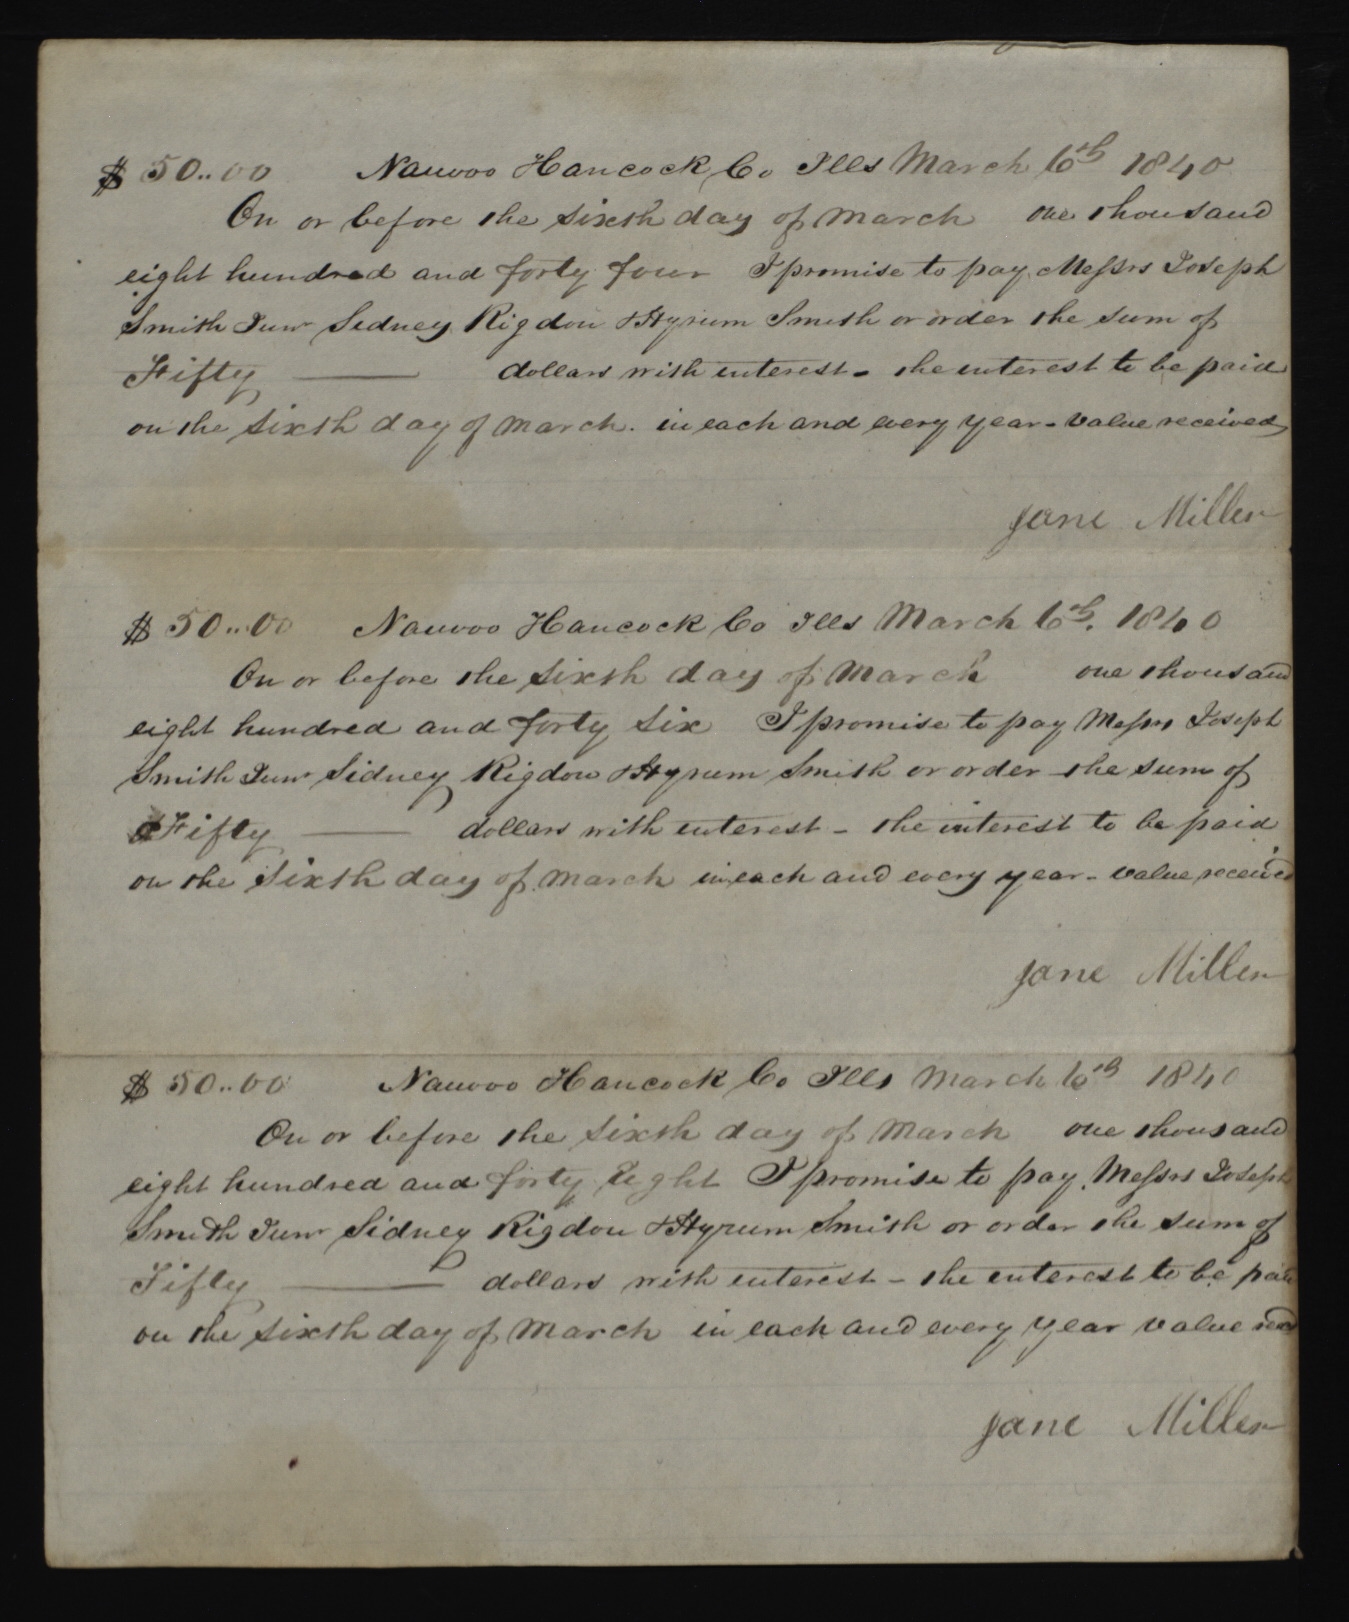 $ 50..00 Nauvoo Hancock Co Ills March 6th 1840
On or before the sixth day of March one thousand
eight hundred and forty four I promise to pay Messrs Joseph
Smith Junr Sidney Rigdon & Hyrum Smith or order the sum of
Fifty —— dollars with interest - the interest to be paid
on the sixth day of March. in each and every year - value received
Jane Miller
$ 50..00 Nauvoo Hancock Co Ills March 6th. 1840
On or before the sixth day of March one thousand
eight hundred and forty six I promise to pay Messrs Joseph
Smith Junr Sidney Rigdon & Hyrum Smith or order the sum of
Fifty —— dollars with interest - the interest to be paid
on the sixth day of March in each and every year - value received
Jane Miller
$ 50..00 Nauvoo Hancock Co Ills March 6th 1840
On or before the sixth day of March one thousand
eight hundred and forty eight I promise to pay Messrs Joseph
Smith Junr Sidney Rigdon & Hyrum Smith or order the sum of
Fifty —— dollars with interest - the interest to be paid
on the sixth day of March in each and every year value recd
Jane Miller